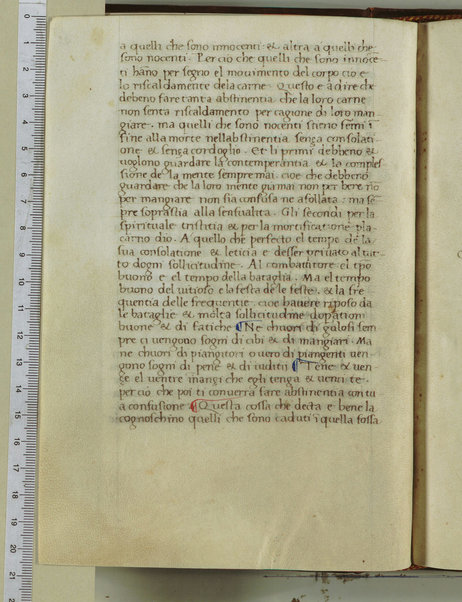 a quelli che sono innocenti · & altra a quelli che
sono nocenti · Perciò che quelli che sono innocē
ti hāno per segno el movimento del corpo cio e
lo riscaldamente dela carne · Questo e a dire che
debeno fare tanta abstinentia che la loro carne
non senta riscaldamento per cagione di loro man
giare · ma quelli che sono nocenti stieno
fine alla morte nell abstinentia senza consolati
one & senza cordoglio · Et li primi debbeno &
voglono guardare la contemperantia & la comples
sione de la mente sempre mai · cioe che debbeno
guardare che la loro mente gia mai non per bere no
per mangiare non sia confusa ne afollata : ma sē
pre soprastia alla sensualita · Gli secondi per la
spirituale tristitia & per la mortificatione pla
carno dio · A quello che perfecto el tempo de la
sua consolatione & leticia e desser privato al tut
to dogni sollicitudine · Al combattitore el tpo
buono e el tempo della bataglia · Ma el tempo
buono del vitioso e la festa de le feste · & la fre
quentia delle frequentie cioe havere riposo da
le bataglie & molta sollicitudine dopation
buone & di fatiche ¶ Ne chuori di gulosi sem
pre ci vengono sogni di cibi & di mangiari · Ma
ne chuori di piangitori overo di piangenti ven
gono sogni di pene & di iuditii ¶ Tene & ven
ce el ventre inanzi che egli tenga & venci te ·
perciò che poi ti converra fare abstinentia con tu
a confusione ¶ Questa cossa che decta e bene la
cognoschino quelli che sono caduti i quella fossa